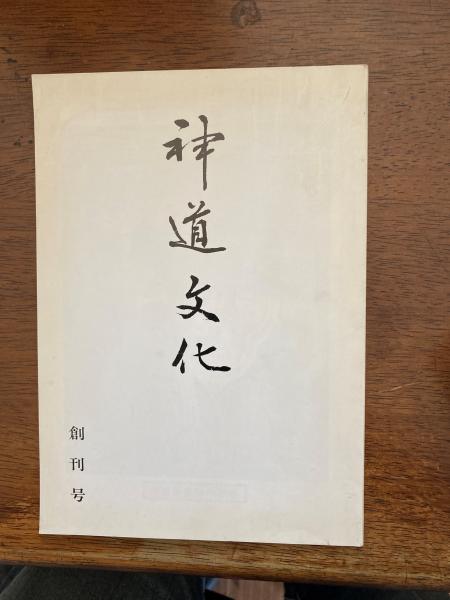 神道文化
創刊号